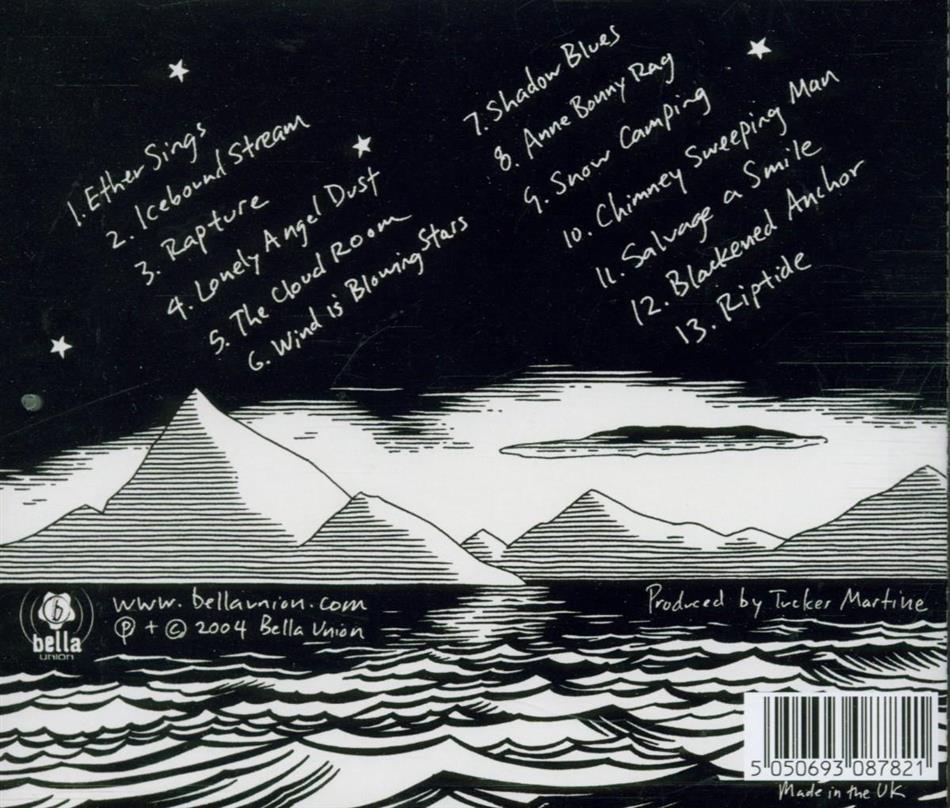 1. Ether Sings
2. Icebound Stream
3. Rapture
4. Lonely Angel Dust
5. The Cloud Room
6. Wind is Blowing Stars
7. Shadow Blues
8. Anne Bonny Rag
9. Snow Camping
10. Chimney Sweeping Man
11. Salvage a Smile
12. Blackened Anchor
13. Riptide
b
bella
union
www.bellaunion.com
℗ + © 2004 Bella Union
Produced by Tucker Martine
5 050693 087821
Made in the UK